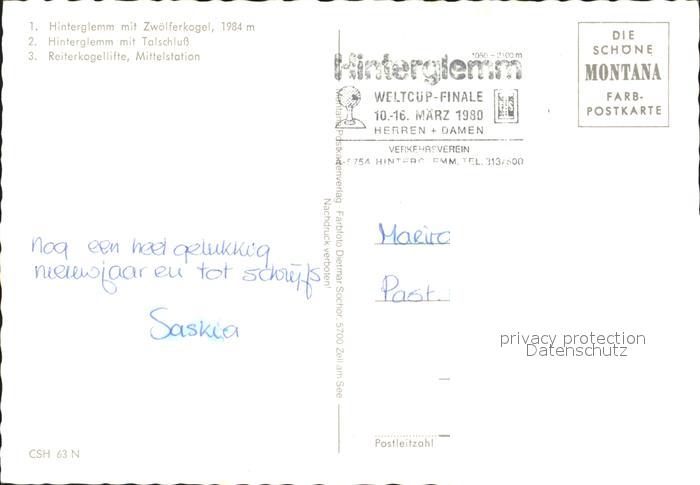 1. Hinterglemm mit Zwölferkogel, 1984 m
2. Hinterglemm mit Talschluß
3. Reiterkogellifte, Mittelstation
1050 - 2100 m
Hinterglemm
WELTCUP-FINALE
10.-16. MÄRZ 1980
HERREN + DAMEN
VERKEHRSVEREIN
A-5754 HINTERGLEMM, TEL.
DIE
SCHÖNE
MONTANA
FARB-
POSTKARTE
Montana Postkartenverlag Farbfoto Dietmar Sochor, 5700 Zell am See
Nachdruck verboten!
nog een heel gelukkig
nieuwjaar en tot schrijfs
Saskia
Past.
privacy protection
Datenschutz
Postleitzahl
CSH 63 N